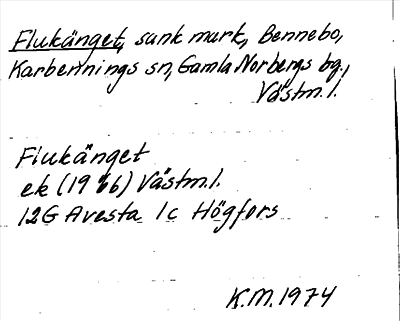 Flukänget, sank mark, Bennebo,
Karbennings sn, Gamla Norbergs bg.,
Västm.l.
Flukänget
ek (1966) Västm.l.
12G Avesta 1c Högfors
K.M. 1974